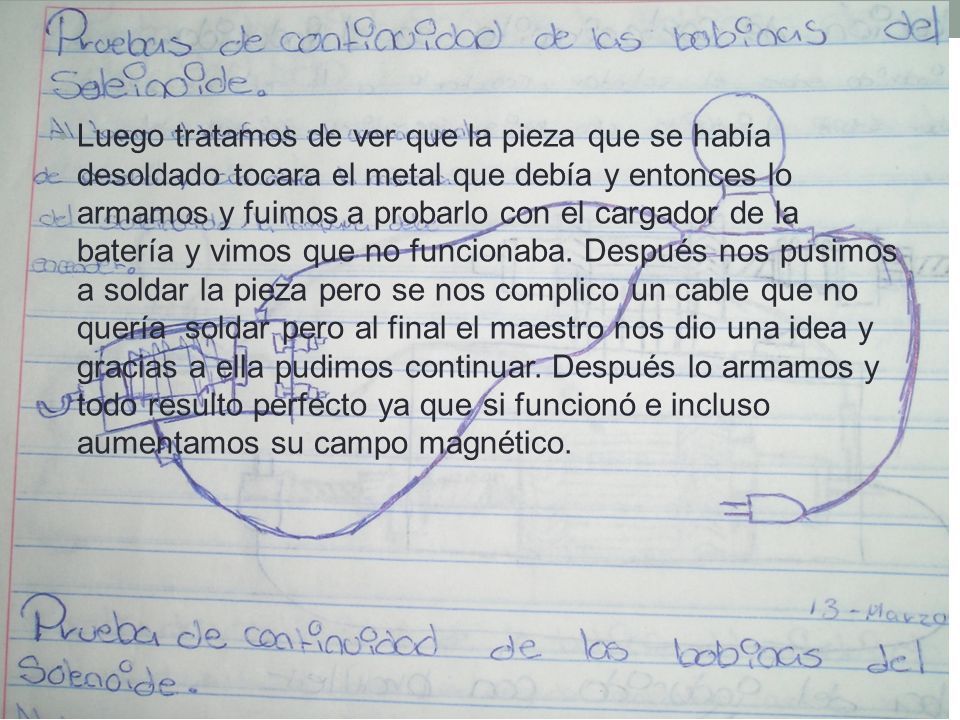 Pruebas de continuidad de las bobinas del
Soleinoide.
Al
Luego tratamos de ver que la pieza que se había
desoldado tocara el metal que debía y entonces lo
armamos y fuimos a probarlo con el cargador de la
batería y vimos que no funcionaba. Después nos pusimos
a soldar la pieza pero se nos complico un cable que no
quería soldar pero al final el maestro nos dio una idea y
gracias a ella pudimos continuar. Después lo armamos y
todo resulto perfecto ya que si funcionó e incluso
aumentamos su campo magnético.
13-Marzo
Prueba de continuidad de las bobinas del
Solenoide.